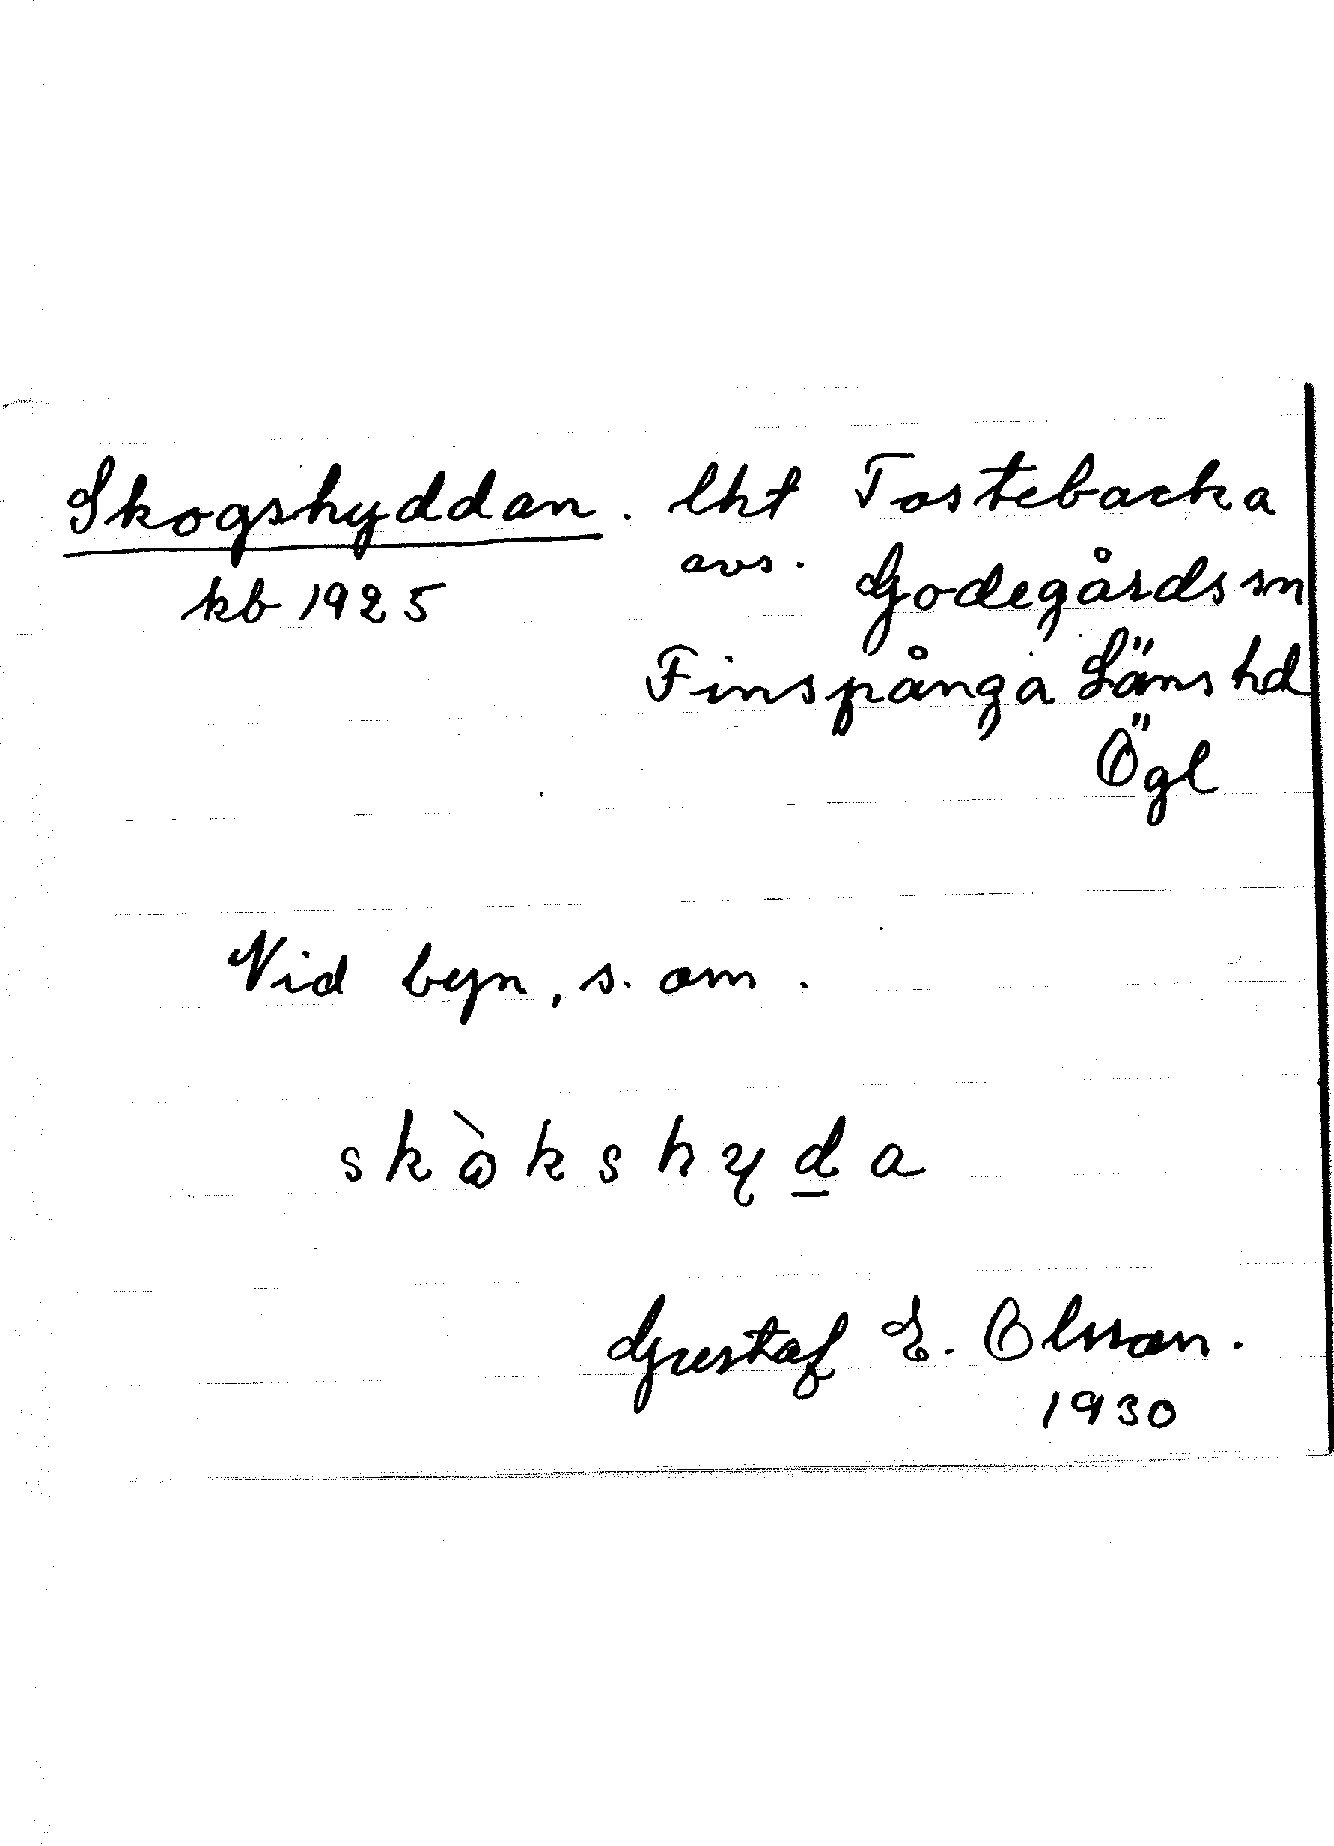 Skogshyddan. lht Tostebacka
avs. Godegårds sn
kb 1925
Finspånga Läns hd
Ögl
Vid byn, s. om.
skò̀kshyḏa
Gustaf E. Olsson.
1930